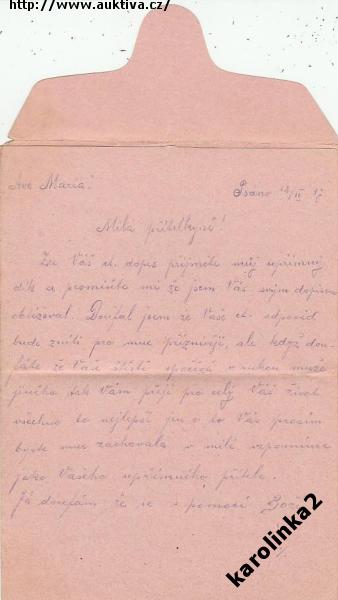 http://www.auktiva.cz/
Ave Maria!
Psáno 12/II 17
Milá přítelkyně!
Za Váš ct. dopis přijměte můj upřímný
dík a promiňte mi že jsem Vás svým dopisem
obtěžoval. Doufal jsem že Vaše ct. odpověd
bude zníti pro mne příznivěji, ale když dou-
fáte že Vaše štěstí spočívá v rukou muže
jiného tak Vám přeji pro celý Váš život
všechno to nejlepší jen o to Vás prosím
byste mne zachovala v milé vzpomínce
jako Vašeho upřímného přítele.
Já doufám že se s pomocí Boží
karolinka2